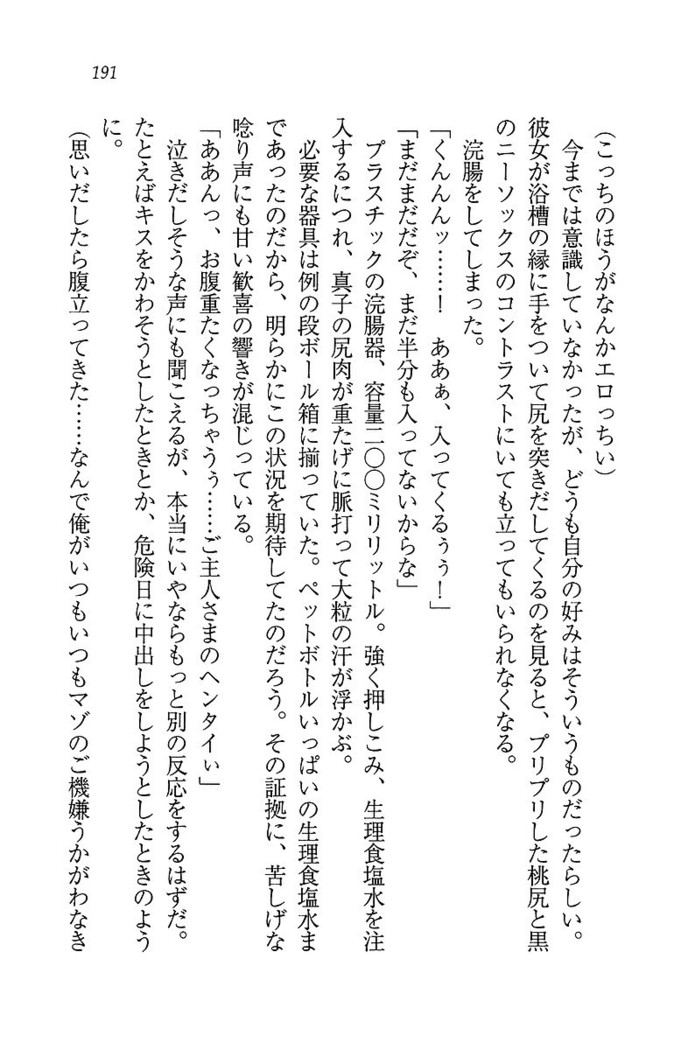 191
(こっちのほうがなんかエロっちい)
　今までは意識していなかったが、どうも自分の好みはそういうものだったらしい。
彼女が浴槽の縁に手をついて尻を突きだしてくるのを見ると、プリプリした桃尻と黒
のニーソックスのコントラストにいても立ってもいられなくなる。
　浣腸をしてしまった。
「くんんんッ……！　ああぁ、入ってくるぅぅ！」
「まだまだだぞ、まだ半分も入ってないからな」
　プラスチックの浣腸器、容量二〇〇ミリリットル。強く押しこみ、生理食塩水を注
入するにつれ、真子の尻肉が重たげに脈打って大粒の汗が浮かぶ。
　必要な器具は例の段ボール箱に揃っていた。ペットボトルいっぱいの生理食塩水ま
であったのだから、明らかにこの状況を期待してたのだろう。その証拠に、苦しげな
唸り声にも甘い歓喜の響きが混じっている。
「ああんっ、お腹重たくなっちゃうぅ……ご主人さまのヘンタイぃ」
　泣きだしそうな声にも聞こえるが、本当にいやならもっと別の反応をするはずだ。
たとえばキスをかわそうとしたときとか、危険日に中出しをしようとしたときのよう
に。
(思いだしたら腹立ってきた……なんで俺がいつもいつもマゾのご機嫌うかがわなき